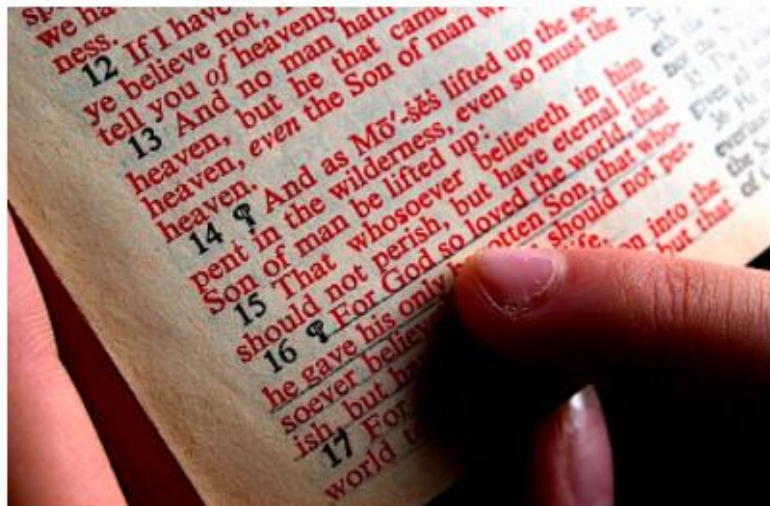 we ha
ness.
12 If I have
ye believe not,
tell you of heavenly
13 And no man hath
heaven, but he that came
heaven, even the Son of man w
heaven.
14 ¶ And as Mō′-šĕš lifted up the ser-
pent in the wilderness, even so must the
Son of man be lifted up:
15 That whosoever believeth in him
should not perish, but have eternal life.
16 ¶ For God so loved the world, that
he gave his only b otten Son, that who-
soever believ should not per-
ish, but ha life.
17 For on into the
world to but that